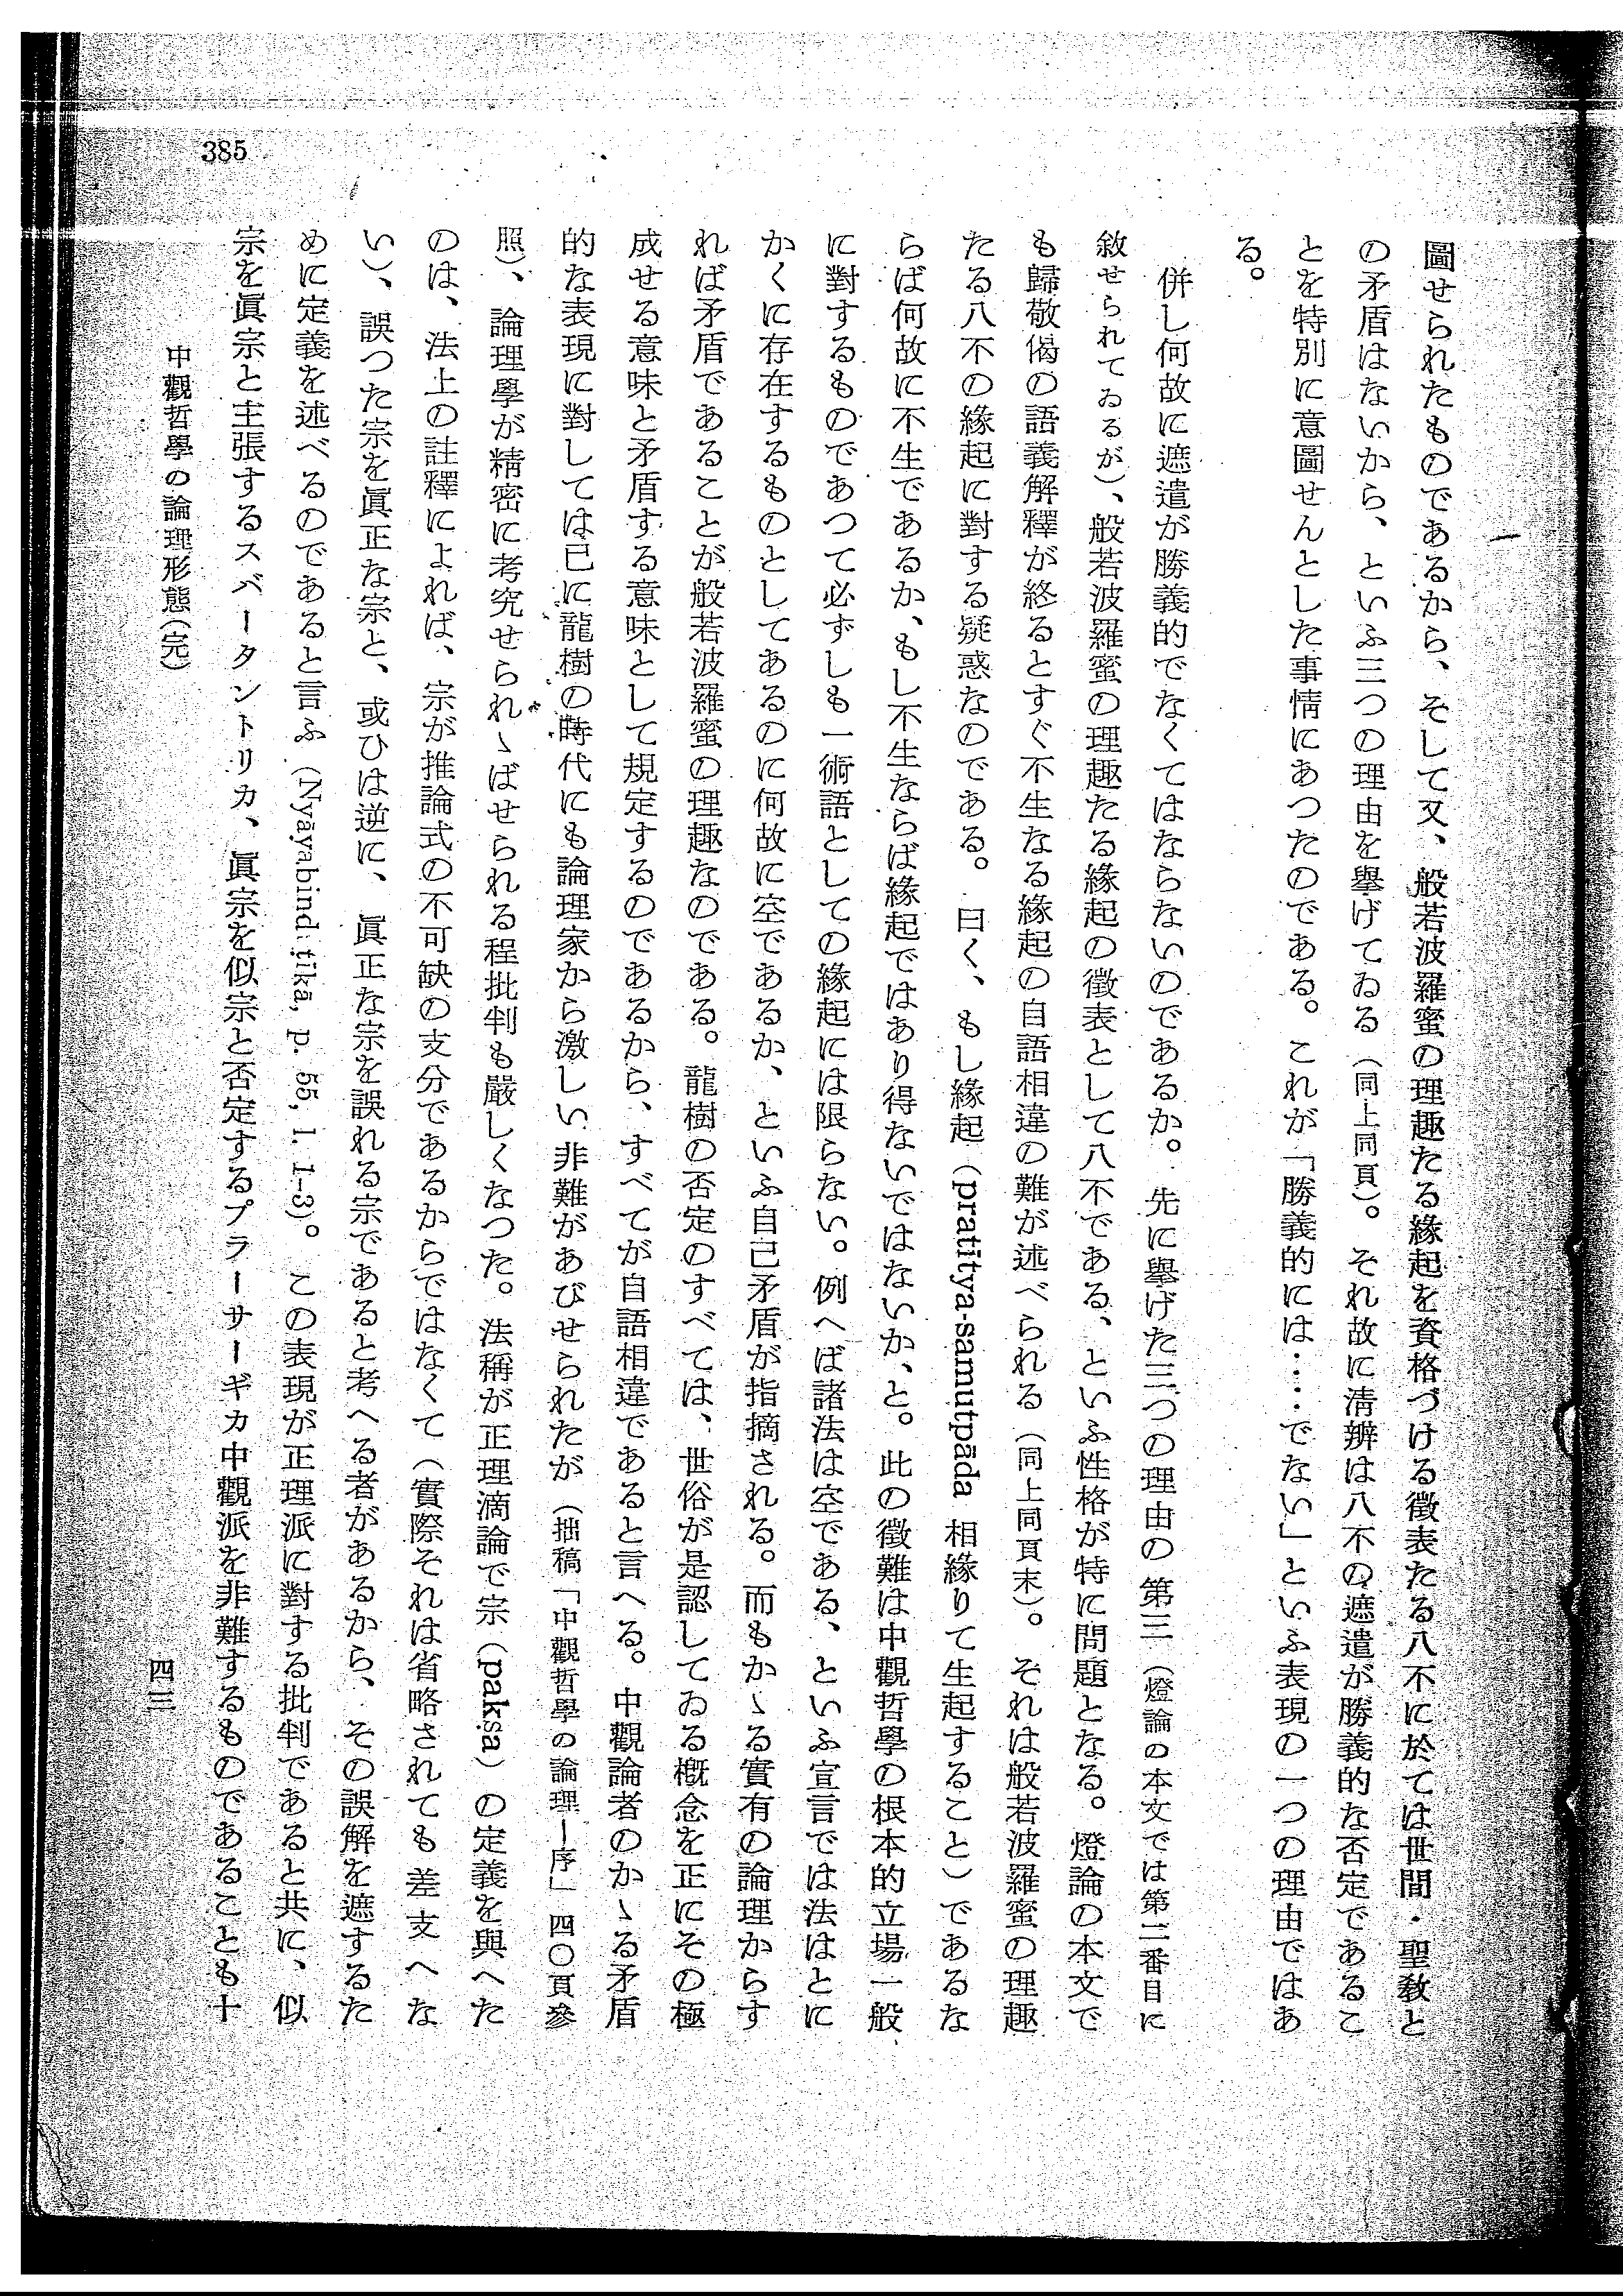 圖せられたものであるから、そして又、般若波羅蜜の理趣たる緣起を資格づける徵表たる八不に於ては世間・聖敎と
の矛盾はないから、といふ三つの理由を擧げてゐる（同上同頁）。それ故に清辨は八不の遮遣が勝義的な否定であるこ
とを特別に意圖せんとした事情にあつたのである。これが「勝義的には‥‥でない」といふ表現の一つの理由ではあ
る。
併し何故に遮遣が勝義的でなくてはならないのであるか。先に擧げた三つの理由の第三（燈論の本文では第二番目に
敘せられてゐるが）、般若波羅蜜の理趣たる緣起の徵表として八不である、といふ性格が特に問題となる。燈論の本文で
も歸敬偈の語義解釋が終るとすぐ不生なる緣起の自語相違の難が述べられる（同上同頁末）。それは般若波羅蜜の理趣
たる八不の緣起に對する疑惑なのである。曰く、もし緣起（pratītya-samutpāda 相緣りて生起すること）であるな
らば何故に不生であるか、もし不生ならば緣起ではあり得ないではないか、と。此の徵難は中觀哲學の根本的立場一般
に對するものであつて必ずしも一術語としての緣起には限らない。例へば諸法は空である、といふ宣言では法はとに
かくに存在するものとしてあるのに何故に空であるか、といふ自己矛盾が指摘される。而もかゝる實有の論理からす
れば矛盾であることが般若波羅蜜の理趣なのである。龍樹の否定のすべては、世俗が是認してゐる概念を正にその極
成せる意味と矛盾する意味として規定するのであるから、すべてが自語相違であると言へる。中觀論者のかゝる矛盾
的な表現に對しては已に龍樹の時代にも論理家から激しい非難があびせられたが（拙稿「中觀哲學の論理ー序」四〇頁參
照）、論理學が精密に考究せられゝばせられる程批判も嚴しくなつた。法稱が正理滴論で宗（pakṣa）の定義を與へた
のは、法上の註釋によれば、宗が推論式の不可缺の支分であるからではなくて（實際それは省略されても差支へな
い）、誤つた宗を眞正な宗と、或ひは逆に、眞正な宗を誤れる宗であると考へる者があるから、その誤解を遮するた
めに定義を述べるのであると言ふ（Nyāyabinduṭīkā, p. 55, l. 1-3）。この表現が正理派に對する批判であると共に、似
宗を眞宗と主張するスバータントリカ、眞宗を似宗と否定するプラーサーギカ中觀派を非難するものであることも十
中觀哲學の論理形態（完）
四三
385